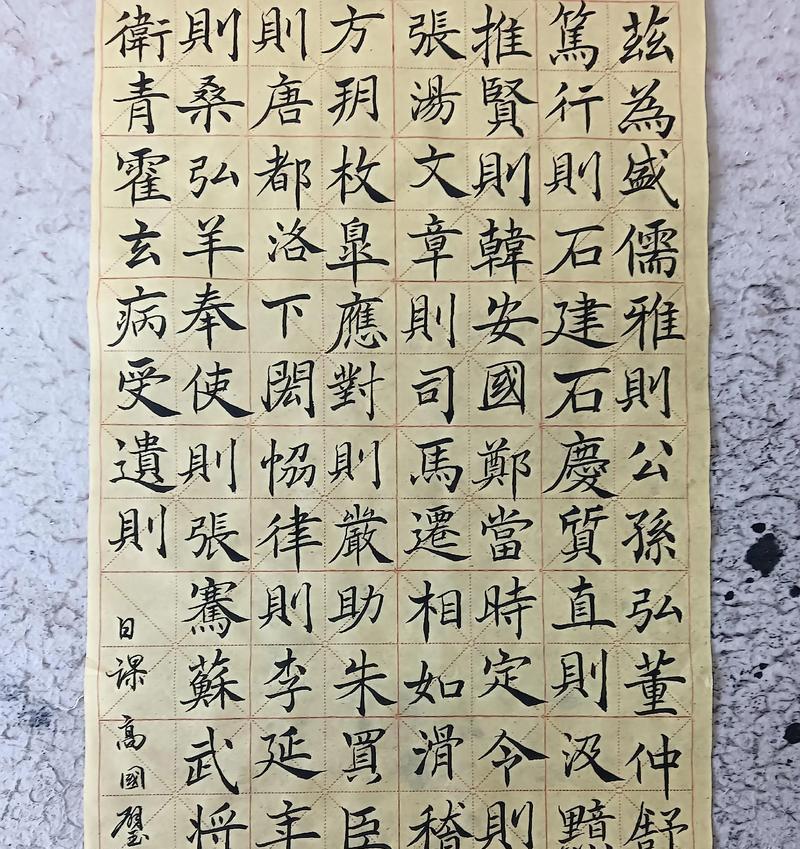 茲為盛儒雅則公孫弘董仲舒
篤行則石建石慶質直則汲黯
推賢則韓安國鄭當時定令則
張湯文章則司馬遷相如滑稽
方朔枚臯應對則嚴助朱買臣
則唐都洛下閎恊律則李延年
則桑弘羊奉使則張騫蘇武將
衛青霍玄病受遺則
日課高國璧